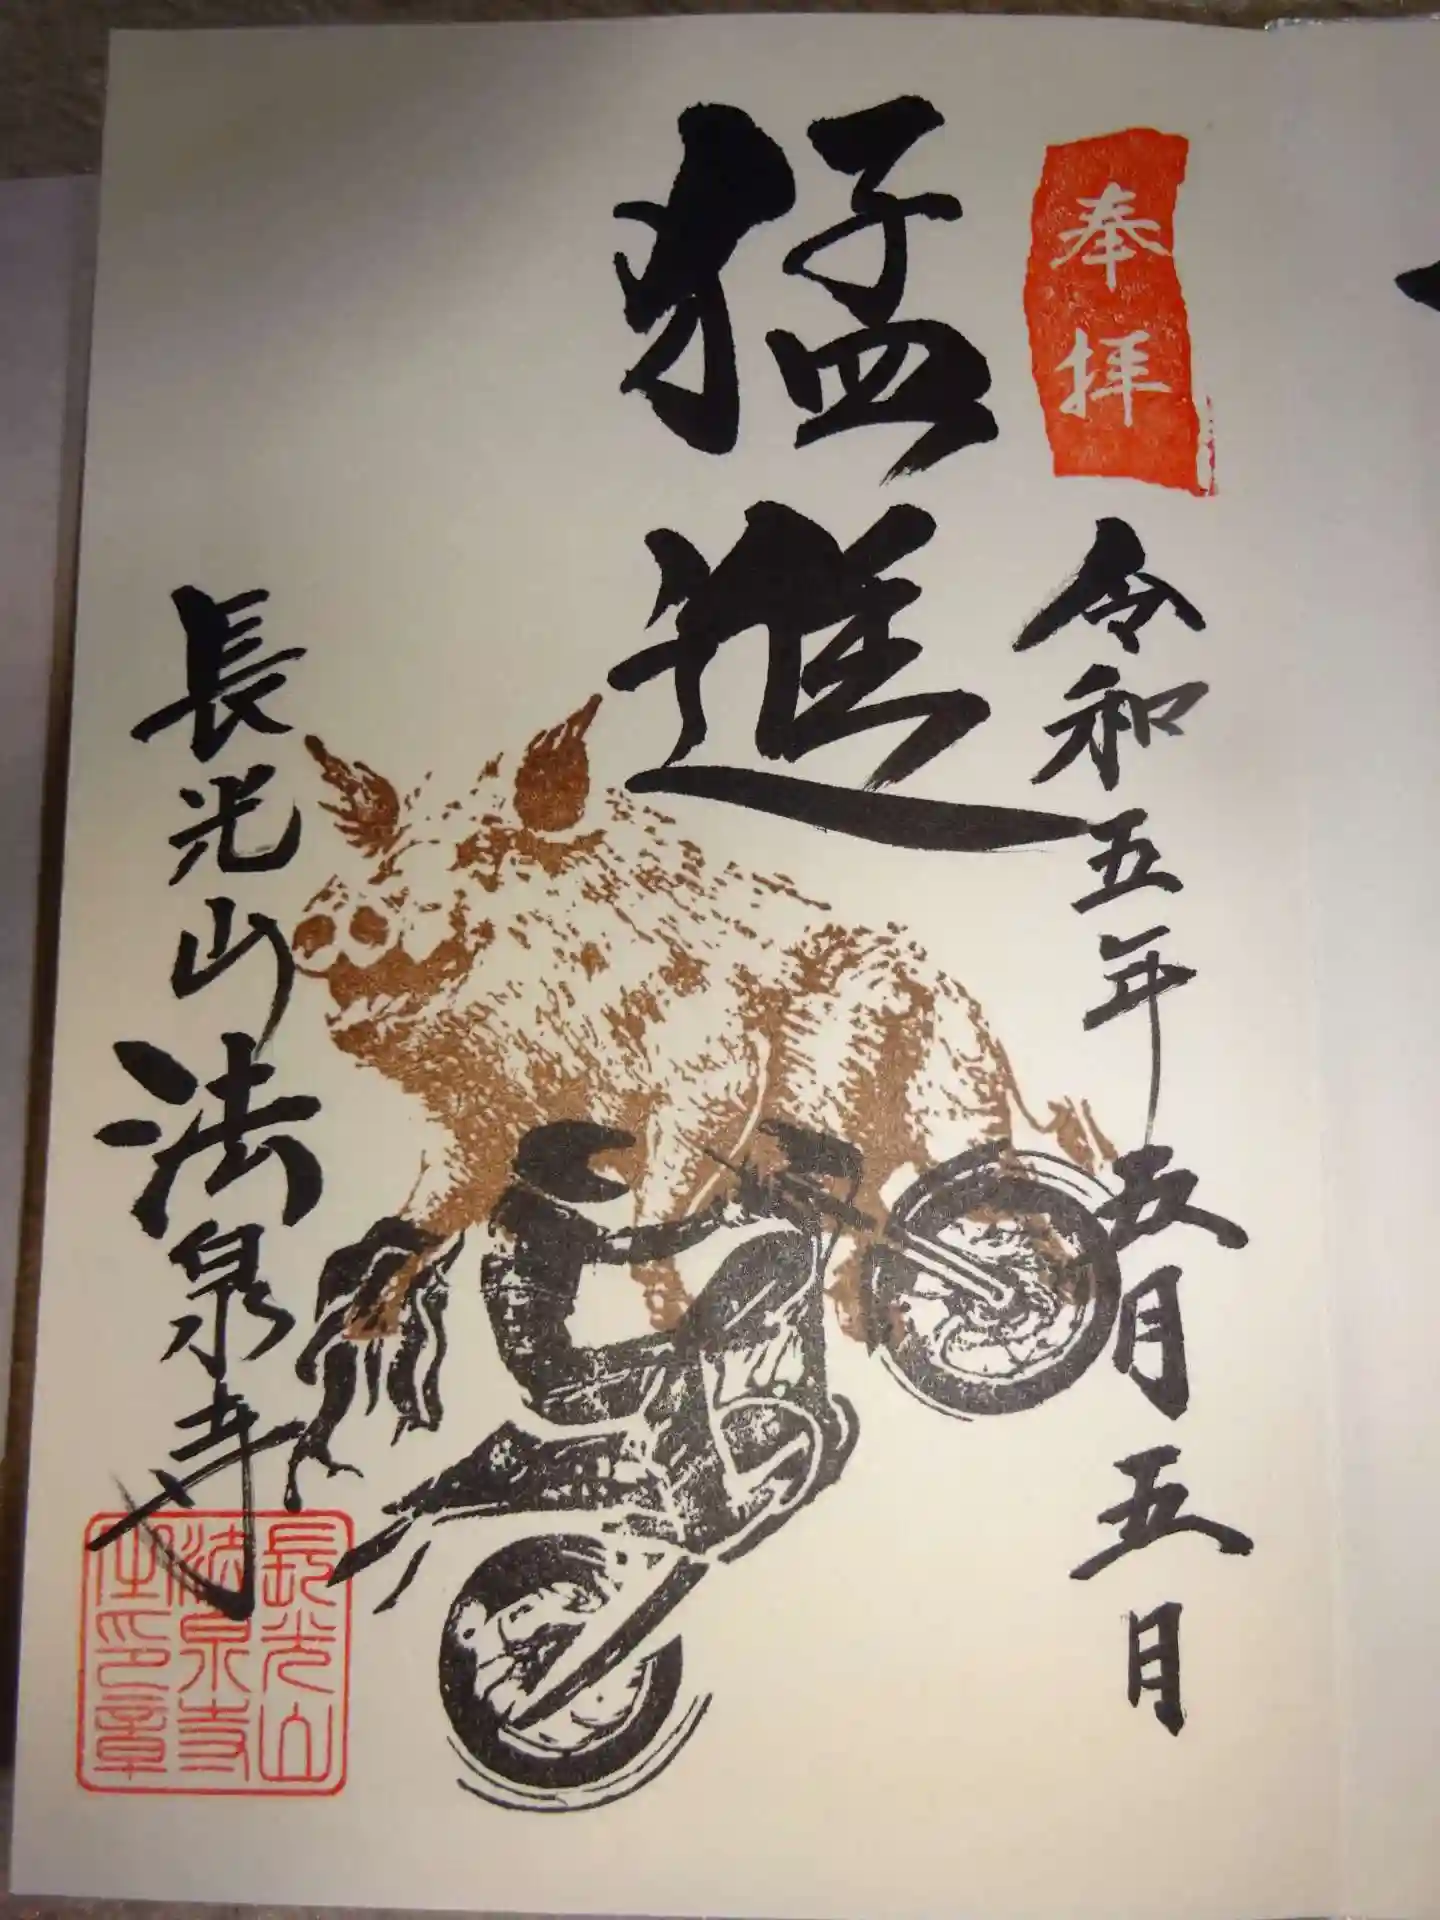 奉拝
令和五年五月五月
猛進
長光山法泉寺
長光山
法泉寺
之印章